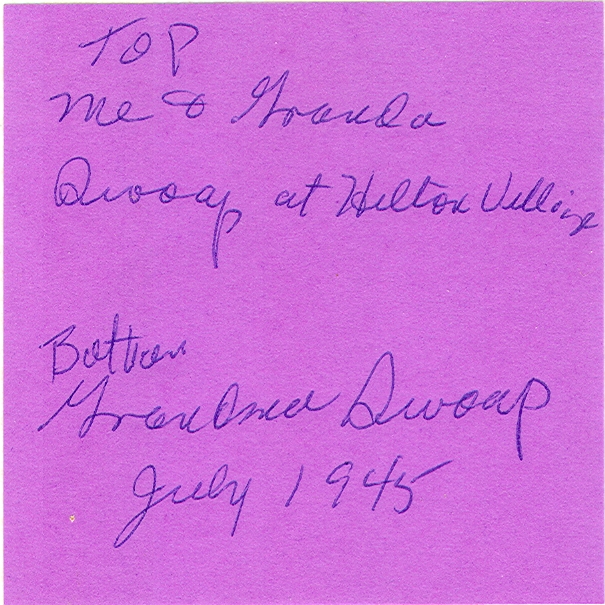 TOP
Me & Granda
Swoap at Hilton Village
Bottom
Grandma Swoap
July 1945